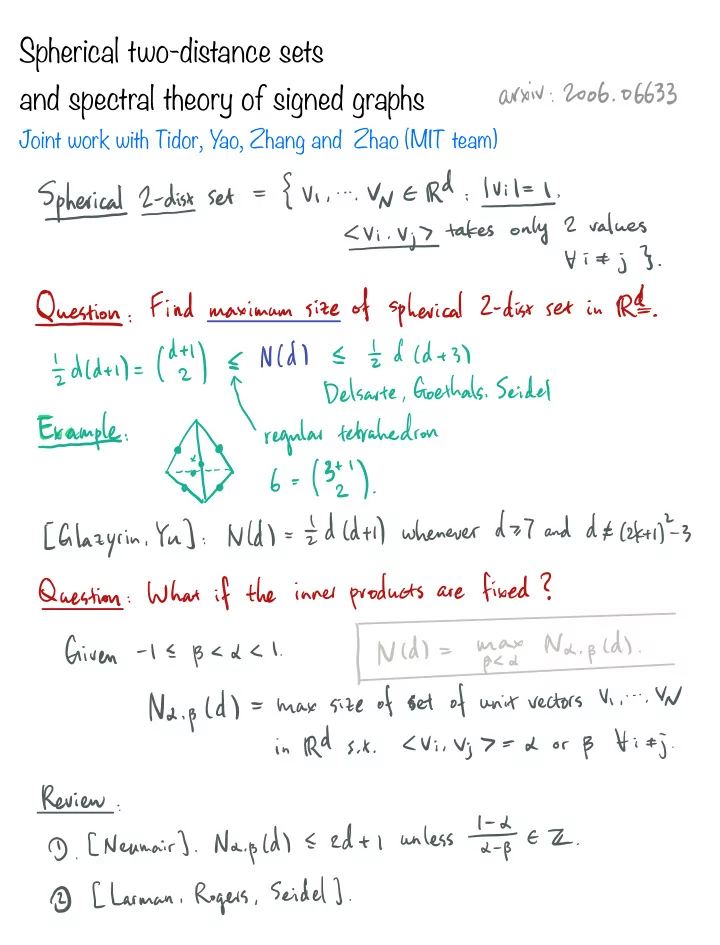 Spherical two-distance sets
and spectral theory of signed graphs arxiv: 2006.06633
Joint work with Tidor, Yao, Zhang and Zhao (MIT team)
Spherical 2-dist set = { v₁, ⋯ v_N ∈ ℝᵈ : |vᵢ| = 1,
<vᵢ, vⱼ> takes only 2 values
∀ i ≠ j }.
Question: Find maximum size of spherical 2-dist set in ℝᵈ.
½ d(d+1) = (d+1 choose 2) ≤ N(d) ≤ ½ d(d+3)
Delsarte, Goethals, Seidel
Example: regular tetrahedron
6 = (3+1 choose 2).
[Glazyrin, Yu]: N(d) = ½ d(d+1) whenever d ≥ 7 and d ≠ (2k+1)² - 3
Question: What if the inner products are fixed?
Given -1 ≤ β < α < 1. N(d) = max_{β<α} N_{α,β}(d).
N_{α,β}(d) = max size of set of unit vectors v₁, ⋯, v_N
in ℝᵈ s.t. <vᵢ, vⱼ> = α or β ∀ i ≠ j.
Review:
① [Neumair]. N_{α,β}(d) ≤ 2d+1 unless (1-α)/(α-β) ∈ ℤ.
② [Larman, Rogers, Seidel].